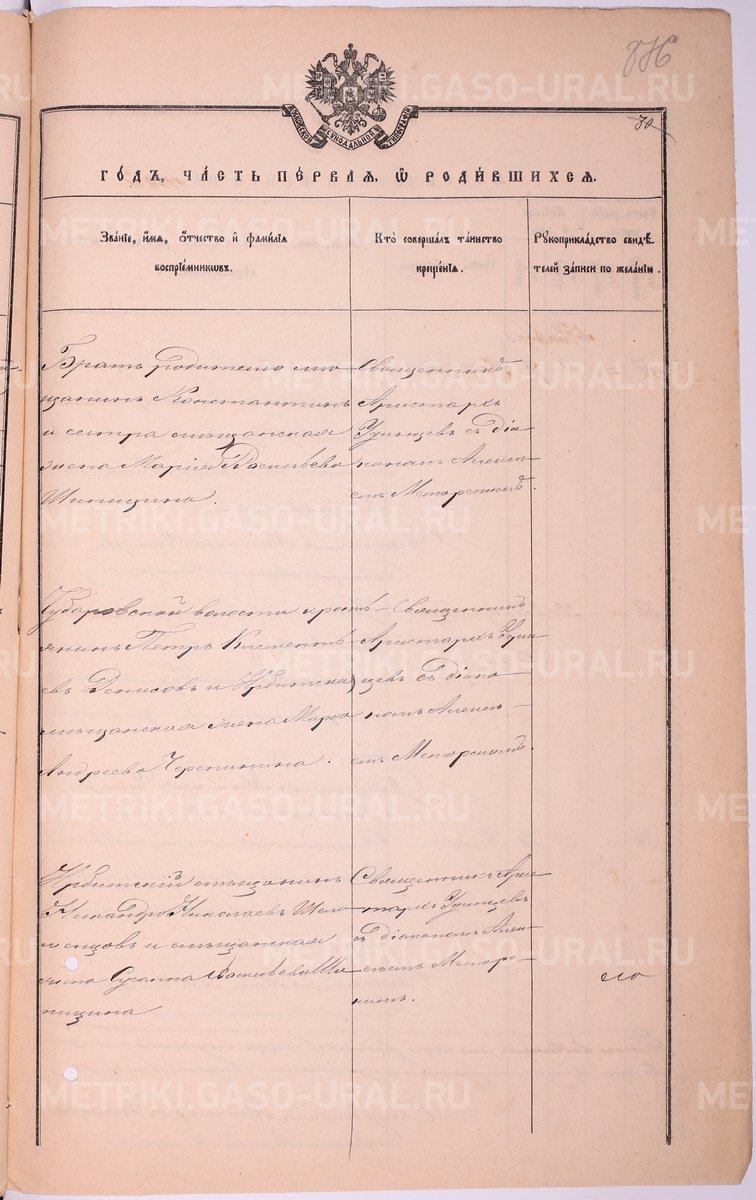 876
70
МОСКОВСКОЙ СѴНОДАЛЬНОЙ ТИПОГРАФІИ
ГО́ДЪ, ЧА́СТЬ ПЕ́РВАЯ, Ѿ РОДИ́ВШИХСЯ.
Зва́нїе, и҆́мѧ, ѻ҆́тчество и҆ фами́лїѧ
воспрїе́мникѡвъ.
Кто̀ соверша́лъ та́инство
креще́нїѧ.
Рꙋкоприкла́дство свидѣ́-
телей за́писи по жела́нїю.
Братъ родителю мѣ-
щанинъ Константинъ
и сестра мѣщанская
жена Марія Васильева
Шипицина.
Священникъ
Аристархъ
Удинцевъ съ діа-
кономъ Алексѣ-
емъ Макарскимъ.
волости кресть-
янинъ Петръ Климентьѣ-
евъ Денисовъ и Ирбитская
мѣщанская жена Марѳа
Андреева Черепинина.
Священникъ
Аристархъ Удин-
цевъ съ діако-
номъ Алексѣ-
емъ
Ирбитскій мѣщанинъ
Никандръ Николаевъ
и мѣщанская
жена Сусанна Васильева Ши-
пицина
Священникъ Ари-
стархъ Удинцевъ
съ діакономъ Алек-
сѣемъ
METRIKI.GASO-URAL.RU